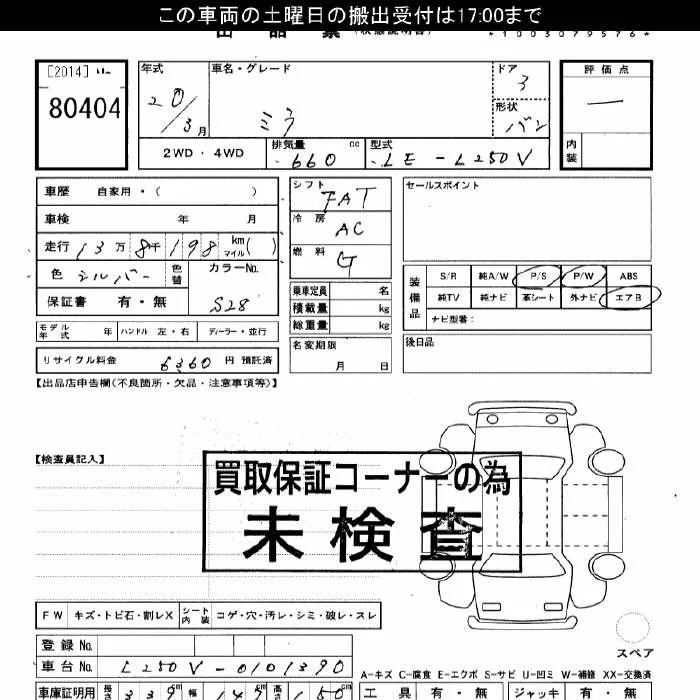 この車両の土曜日の搬出受付は17:00まで
出品票 (状態説明書)
*1003079576*
[2014]
80404
年式 20/3月
車名・グレード ミラ
ドア 3
形状 バン
評価点 —
内装
2WD・4WD
排気量 660 cc
型式 LE-L250V
車歴 自家用・( )
車検 年 月
走行 13万8千198 km マイル( )
色 シルバー 色替
カラーNo. S28
保証書 有・無
モデル年式 年 ハンドル 左・右 ディーラー・並行
リサイクル料金 6360 円 預託済
シフト FAT
冷房 AC
燃料 G
乗車定員 名
積載量 kg
総重量 kg
名変期限 月 日
セールスポイント
装備品
S/R 純A/W P/S P/W ABS
純TV 純ナビ 革シート 外ナビ エアB
ナビ型番:
後日品
【出品店申告欄(不良箇所・欠品・注意事項等)】
【検査員記入】
買取保証コーナーの為
未検査
FW キズ・トビ石・割レX シート内装 コゲ・穴・汚レ・シミ・破レ・スレ
スペア
登録No.
車台No. L250V-0101390
A-キズ C-腐食 E-エクボ S-サビ U-凹ミ W-補修 XX-交換済
車庫証明用 長さ 339cm 幅 147cm 高さ 150cm
工具 有・無 ジャッキ 有・無